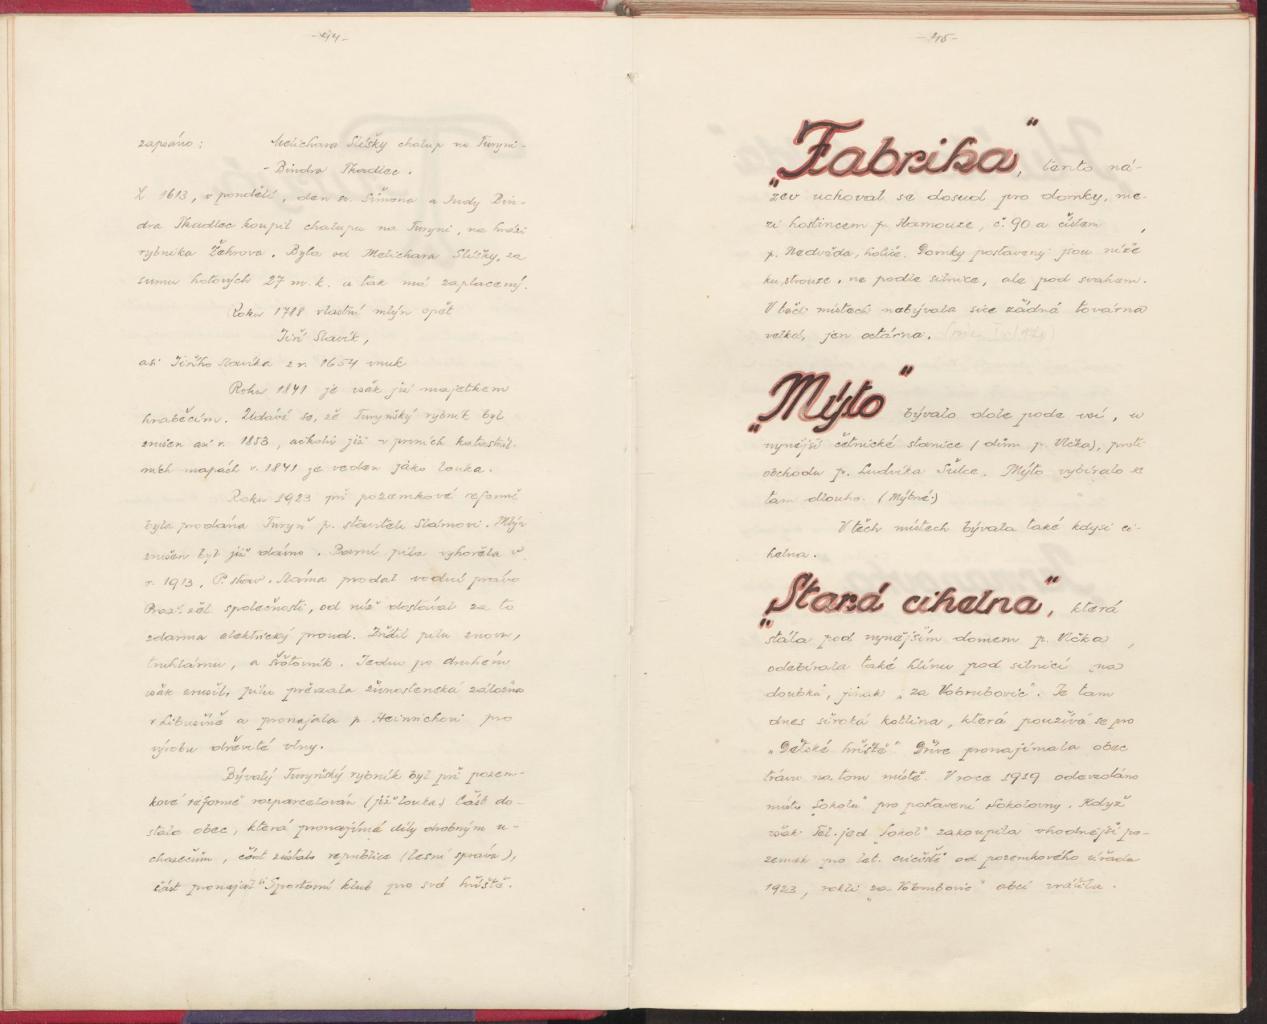 - 44 -
zapsáno: Melichara Slížky chalup na Turyni -
- Bindra Tkadlec.
1613, v pondělí, den sv. Šimona a Judy Bin-
dra Tkadlec koupil chalupu na Turyni, na hrázi
rybníka Žehrova. Byla od Melichara Slížky, za
sumu hotových 27 m. k. a tak má zaplacený.
Roku 1788 vlastní mlýn opět
Jiří Slavík,
asi Jiřího Slavíka z r. 1654 vnuk
Roku 1841 je však již majetkem
hraběcím. Udává se, že Turyňský rybník byl
zrušen asi r. 1853, ačkoliv již v prvních katastrál-
ních mapách r. 1841 je veden jako louka.
Roku 1923 při pozemkové reformě
byla prodána Turyň p. staviteli Slámovi. Mlýn
zrušen byl již dávno. Parní pila vyhořela v
r. 1913. P. stav. Sláma prodal vodní právo
společnosti, od níž dostával za to
zdarma elektrický proud. Zřídil pilu znovu,
truhlárnu, a šrotovník. Jedno po druhém
však zrušil, pilu převzala živnostenská záložna
v Libušíně a pronajala p. Heinrichovi pro
výrobu dřevité vlny.
Bývalý Turyňský rybník byl při pozem-
kové reformě rozparcelován (již louka) část do-
stala obec, která pronajímá díly drobným u-
chazečům, část zůstala republice (lesní správa),
část pronajal "Sportovní klub pro své hřiště.
- 45 -
„Fabrika", tento ná-
zev uchoval se dosud pro domky, me-
zi hostincem p. Hamouze, č. 90 a číslem
p. Nedvěda, holiče. Domky postaveny jsou níže
ku strouze, ne podle silnice, ale pod svahem.
V těch místech nebývala sice žádná továrna
velká, jen octárna.
„Mýto" bývalo dole pode vsí, u
nynější četnické stanice (dům p. Vlčka), proti
obchodu p. Ludvíka Šulce. Mýto vybíralo se
tam dlouho. (Mýtné.)
V těch místech bývala také kdysi ci-
helna.
„Stará cihelna", která
stála pod nynějším domem p. Vlčka,
odebírala také hlínu pod silnicí na
doubku, jinak „za Vobrubovic". Je tam
dnes široká kotlina, která používá se pro
„Dětské hřiště". Dříve pronajímala obec
trávu na tom místě. V roce 1919 odevzdáno
místo „Sokolu" pro postavení Sokolovny. Když
však Těl. jed. „Sokol" zakoupila vhodnější po-
zemek pro let. cvičiště od pozemkového úřadu
1923, rokli „za Vobrubovic" obci vrátila.